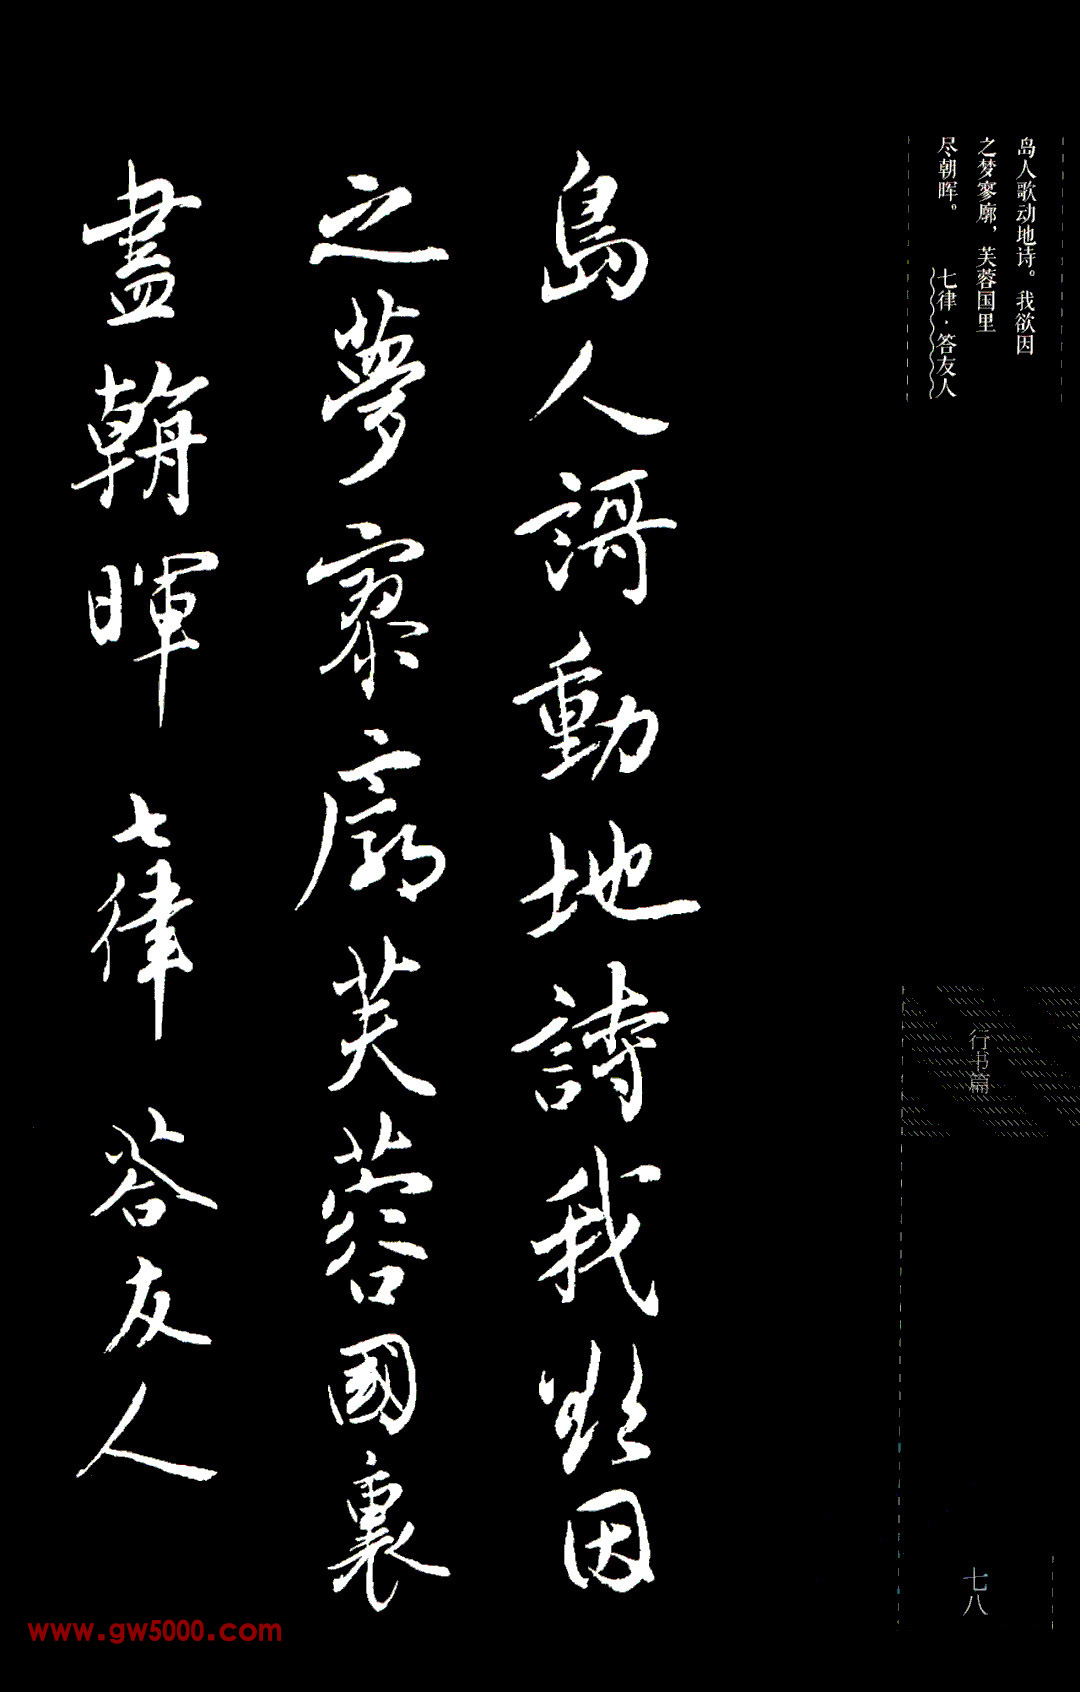 岛人歌动地诗。我欲因
之梦寥廓，芙蓉国里
尽朝晖。 七律·答友人
島人謌動地詩我欲因
之夢寥廓芙蓉國裏
盡朝暉 七律 答友人
行书篇
七八
www.gw5000.com